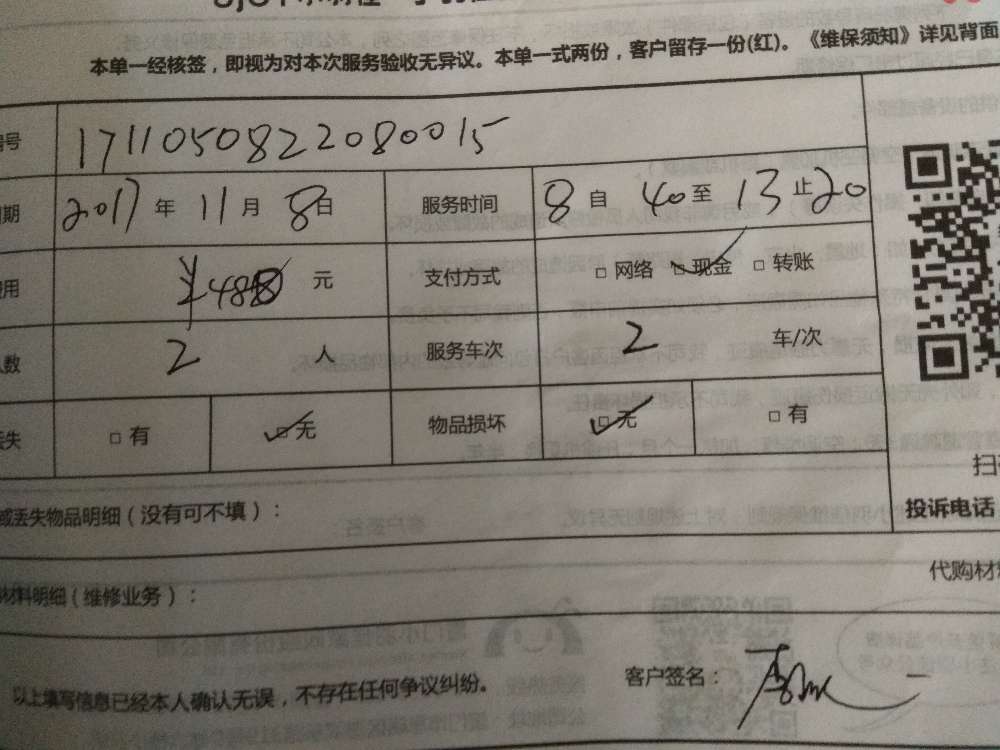 本单一经核签，即视为对本次服务验收无异议。本单一式两份，客户留存一份(红)。《维保须知》详见背面
号 1711050822080015
期 2017 年 11 月 8 日 服务时间 8 自 40 至 13 止 20
用 ¥488 元 支付方式 □ 网络 □ 现金 □ 转账
人数 2 人 服务车次 2 车/次
丢失 □ 有 □ 无 物品损坏 □ 无 □ 有
或丢失物品明细（没有可不填）：
投诉电话
代购材
材料明细（维修业务）：
以上填写信息已经本人确认无误，不存在任何争议纠纷。
客户签名：